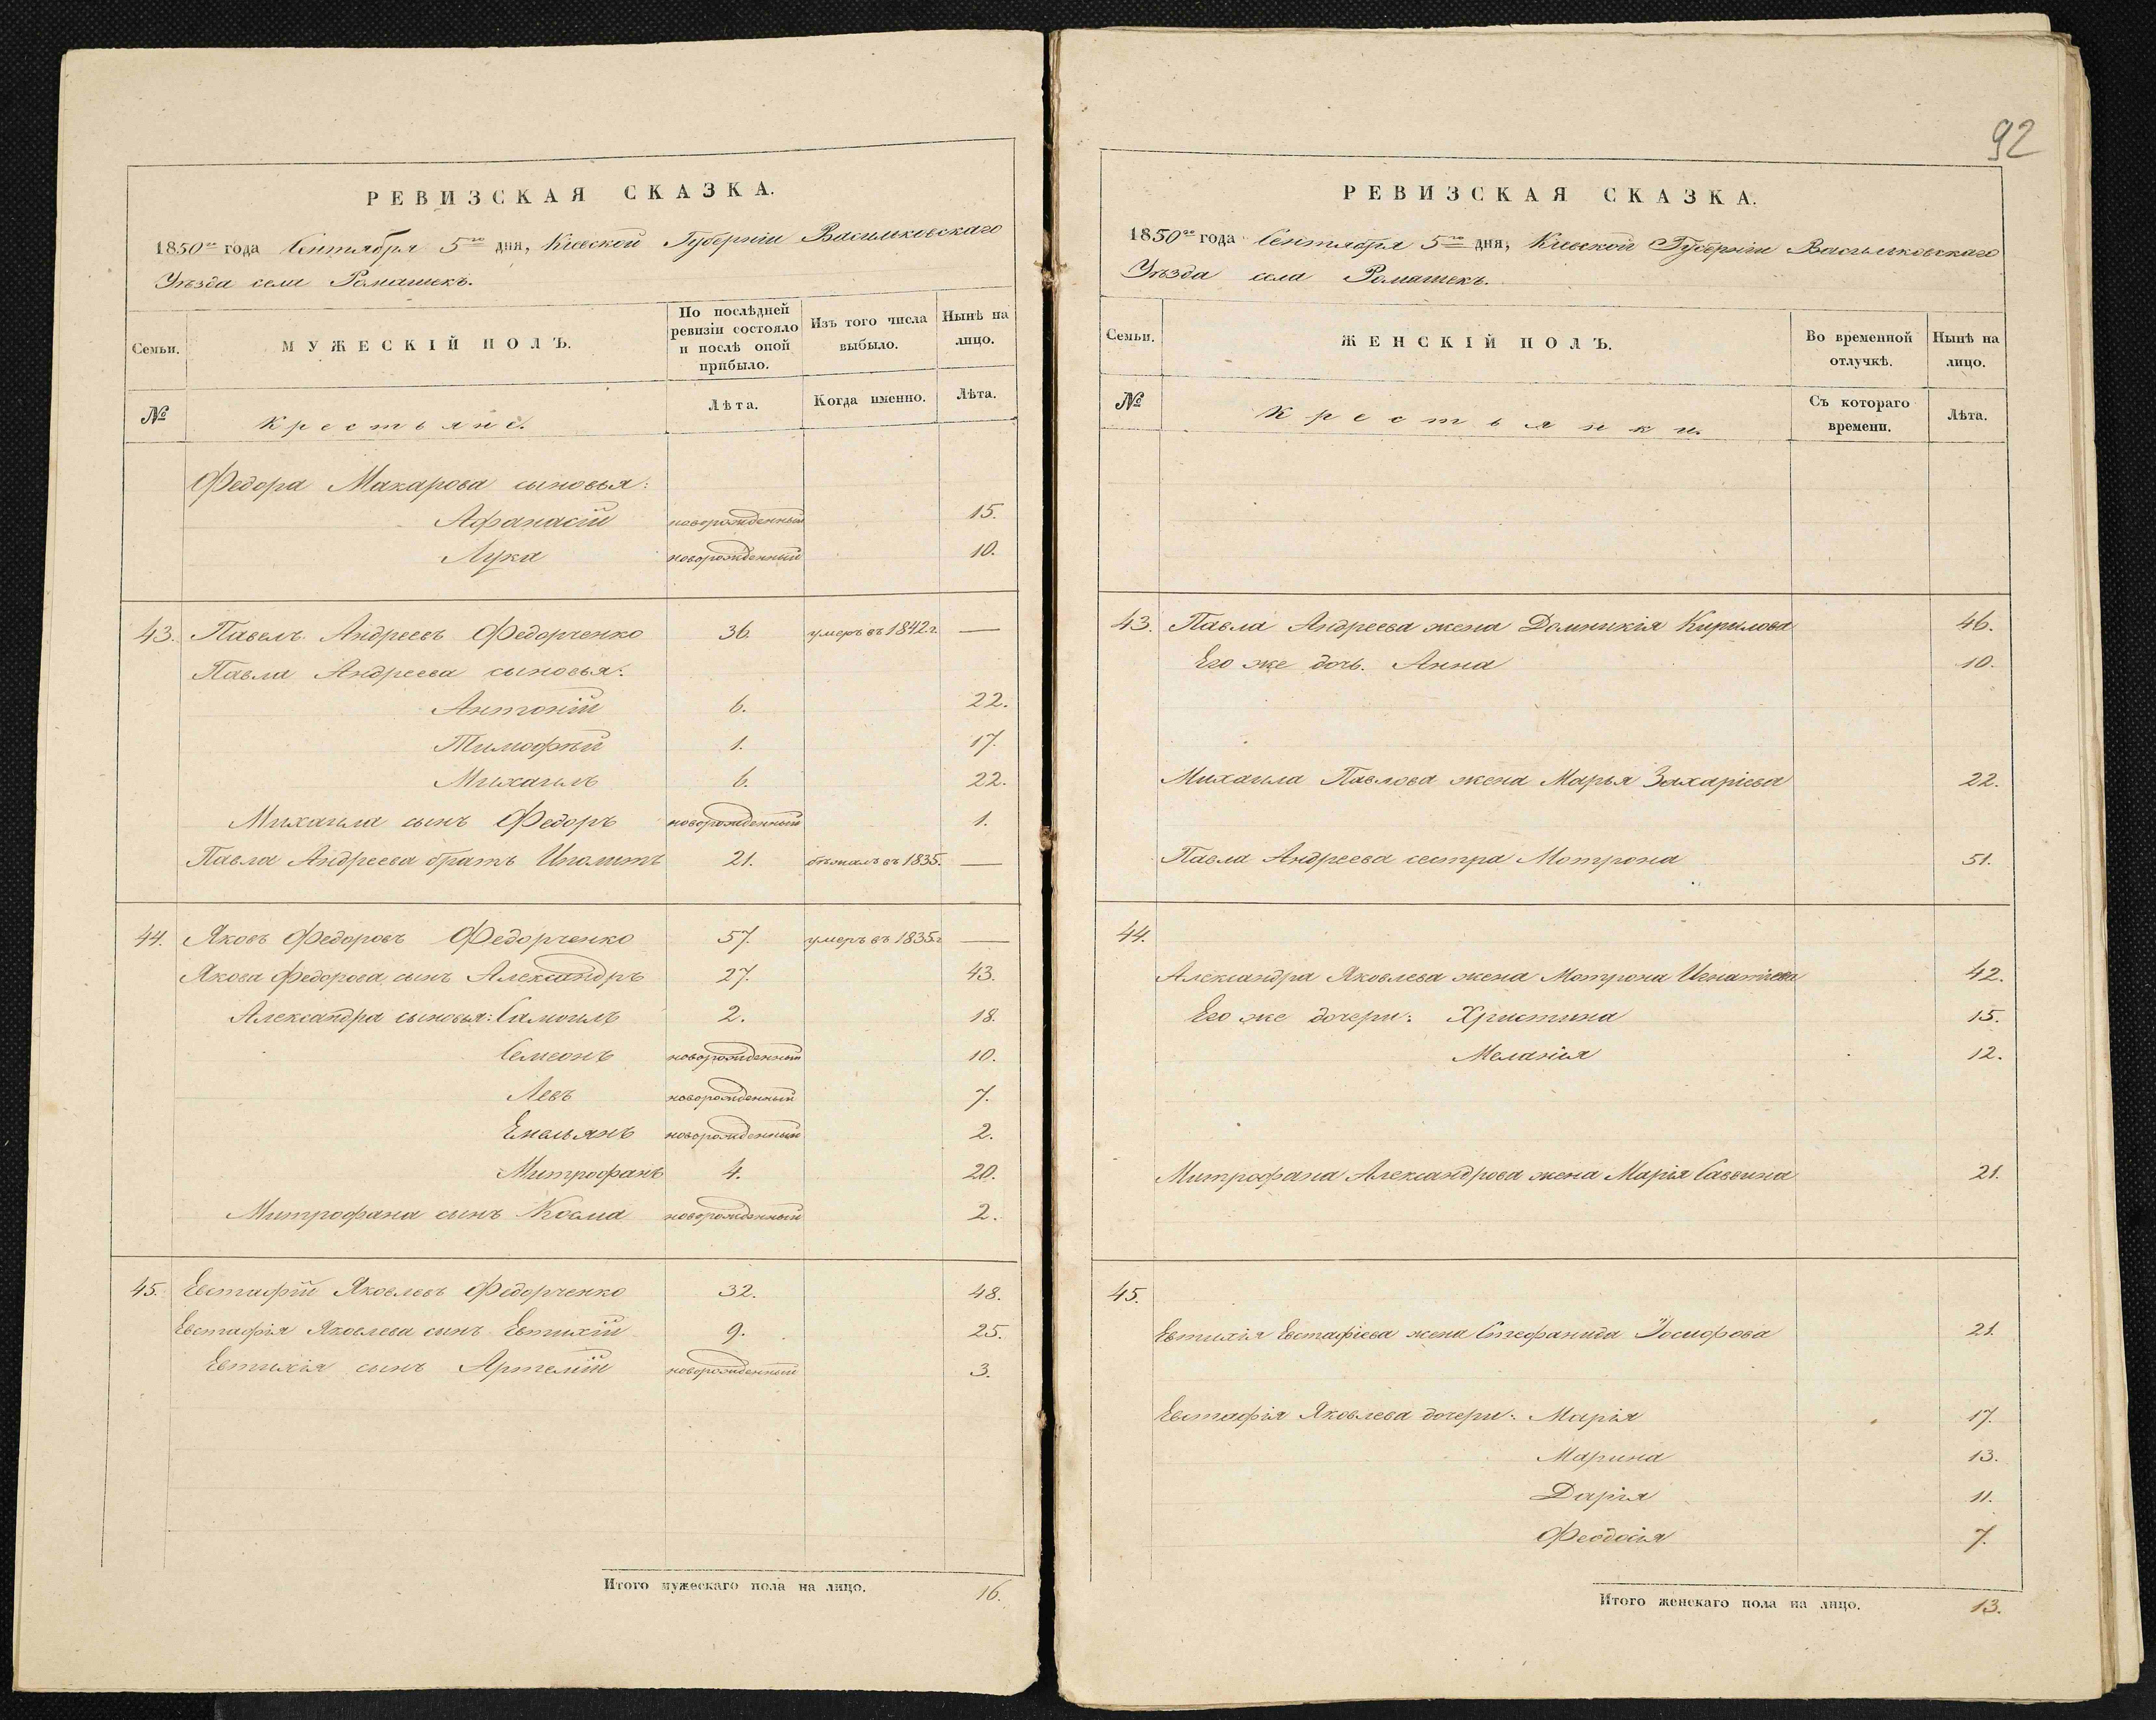 РЕВИЗСКАЯ СКАЗКА.
1850го года Сентября 5го дня, Киевской Губернiи Васильковскаго
Уѣзда села Ромашекъ.
Семьи.
МУЖЕСКIЙ ПОЛЪ.
По послѣдней ревизiи состояло и послѣ оной прибыло.
Изъ того числа выбыло.
Нынѣ на лицо.
№
Крестьяне.
Лѣта.
Когда именно.
Лѣта.
Федора Макарова сыновья:
Афанасiй новорожденный 15.
Лука новорожденный 10.
43. Павелъ Андреевъ Федорченко 36. умеръ въ 1842 г. —
Павла Андреева сыновья:
Антонiй 6. 22.
Тимофѣй 1. 17.
Михаилъ 6. 22.
Михаила сынъ Федоръ новорожденный 1.
Павла Андреева братъ Иполитъ 21. бѣжалъ въ 1835. —
44. Яковъ Федоровъ Федорченко 57. умеръ въ 1835 г —
Якова Федорова сынъ Александръ 27. 43.
Александра сыновья: Самоилъ 2. 18.
Семеонъ новорожденный 10.
Левъ новорожденный 7.
Емельянъ новорожденный 2.
Митрофанъ 4. 20.
Митрофана сынъ Косма новорожденный 2.
45. Евстафiй Яковлевъ Федорченко 32. 48.
Евстафiя Яковлева сынъ Евтихiй 9. 25.
Евтихiя сынъ Артемiй новорожденный 3.
Итого мужескаго пола на лицо. 16.
92
РЕВИЗСКАЯ СКАЗКА.
1850го года Сентября 5го дня, Киевской Губернiи Васильковскаго
Уѣзда села Ромашекъ.
Семьи.
ЖЕНСКIЙ ПОЛЪ.
Во временной отлучкѣ.
Нынѣ на лицо.
№
Крестьянки.
Съ котораго времени.
Лѣта.
43. Павла Андреева жена Домникiя Кирилова 46.
Его же дочь. Анна 10.
Михаила Павлова жена Марья Захарiева 22.
Павла Андреева сестра Мотрона 51.
44.
Александра Яковлева жена Мотрона Игнатiева 42.
Его же дочери: Христина 15.
Меланiя 12.
Митрофана Александрова жена Марiя Саввина 21.
45.
Евтихiя Евстафiева жена Стефанида Iосифова 21.
Евстафiя Яковлева дочери: Марiя 17.
Марина 13.
Дарiя 11.
Феодосiя 7.
Итого женскаго пола на лицо. 13.